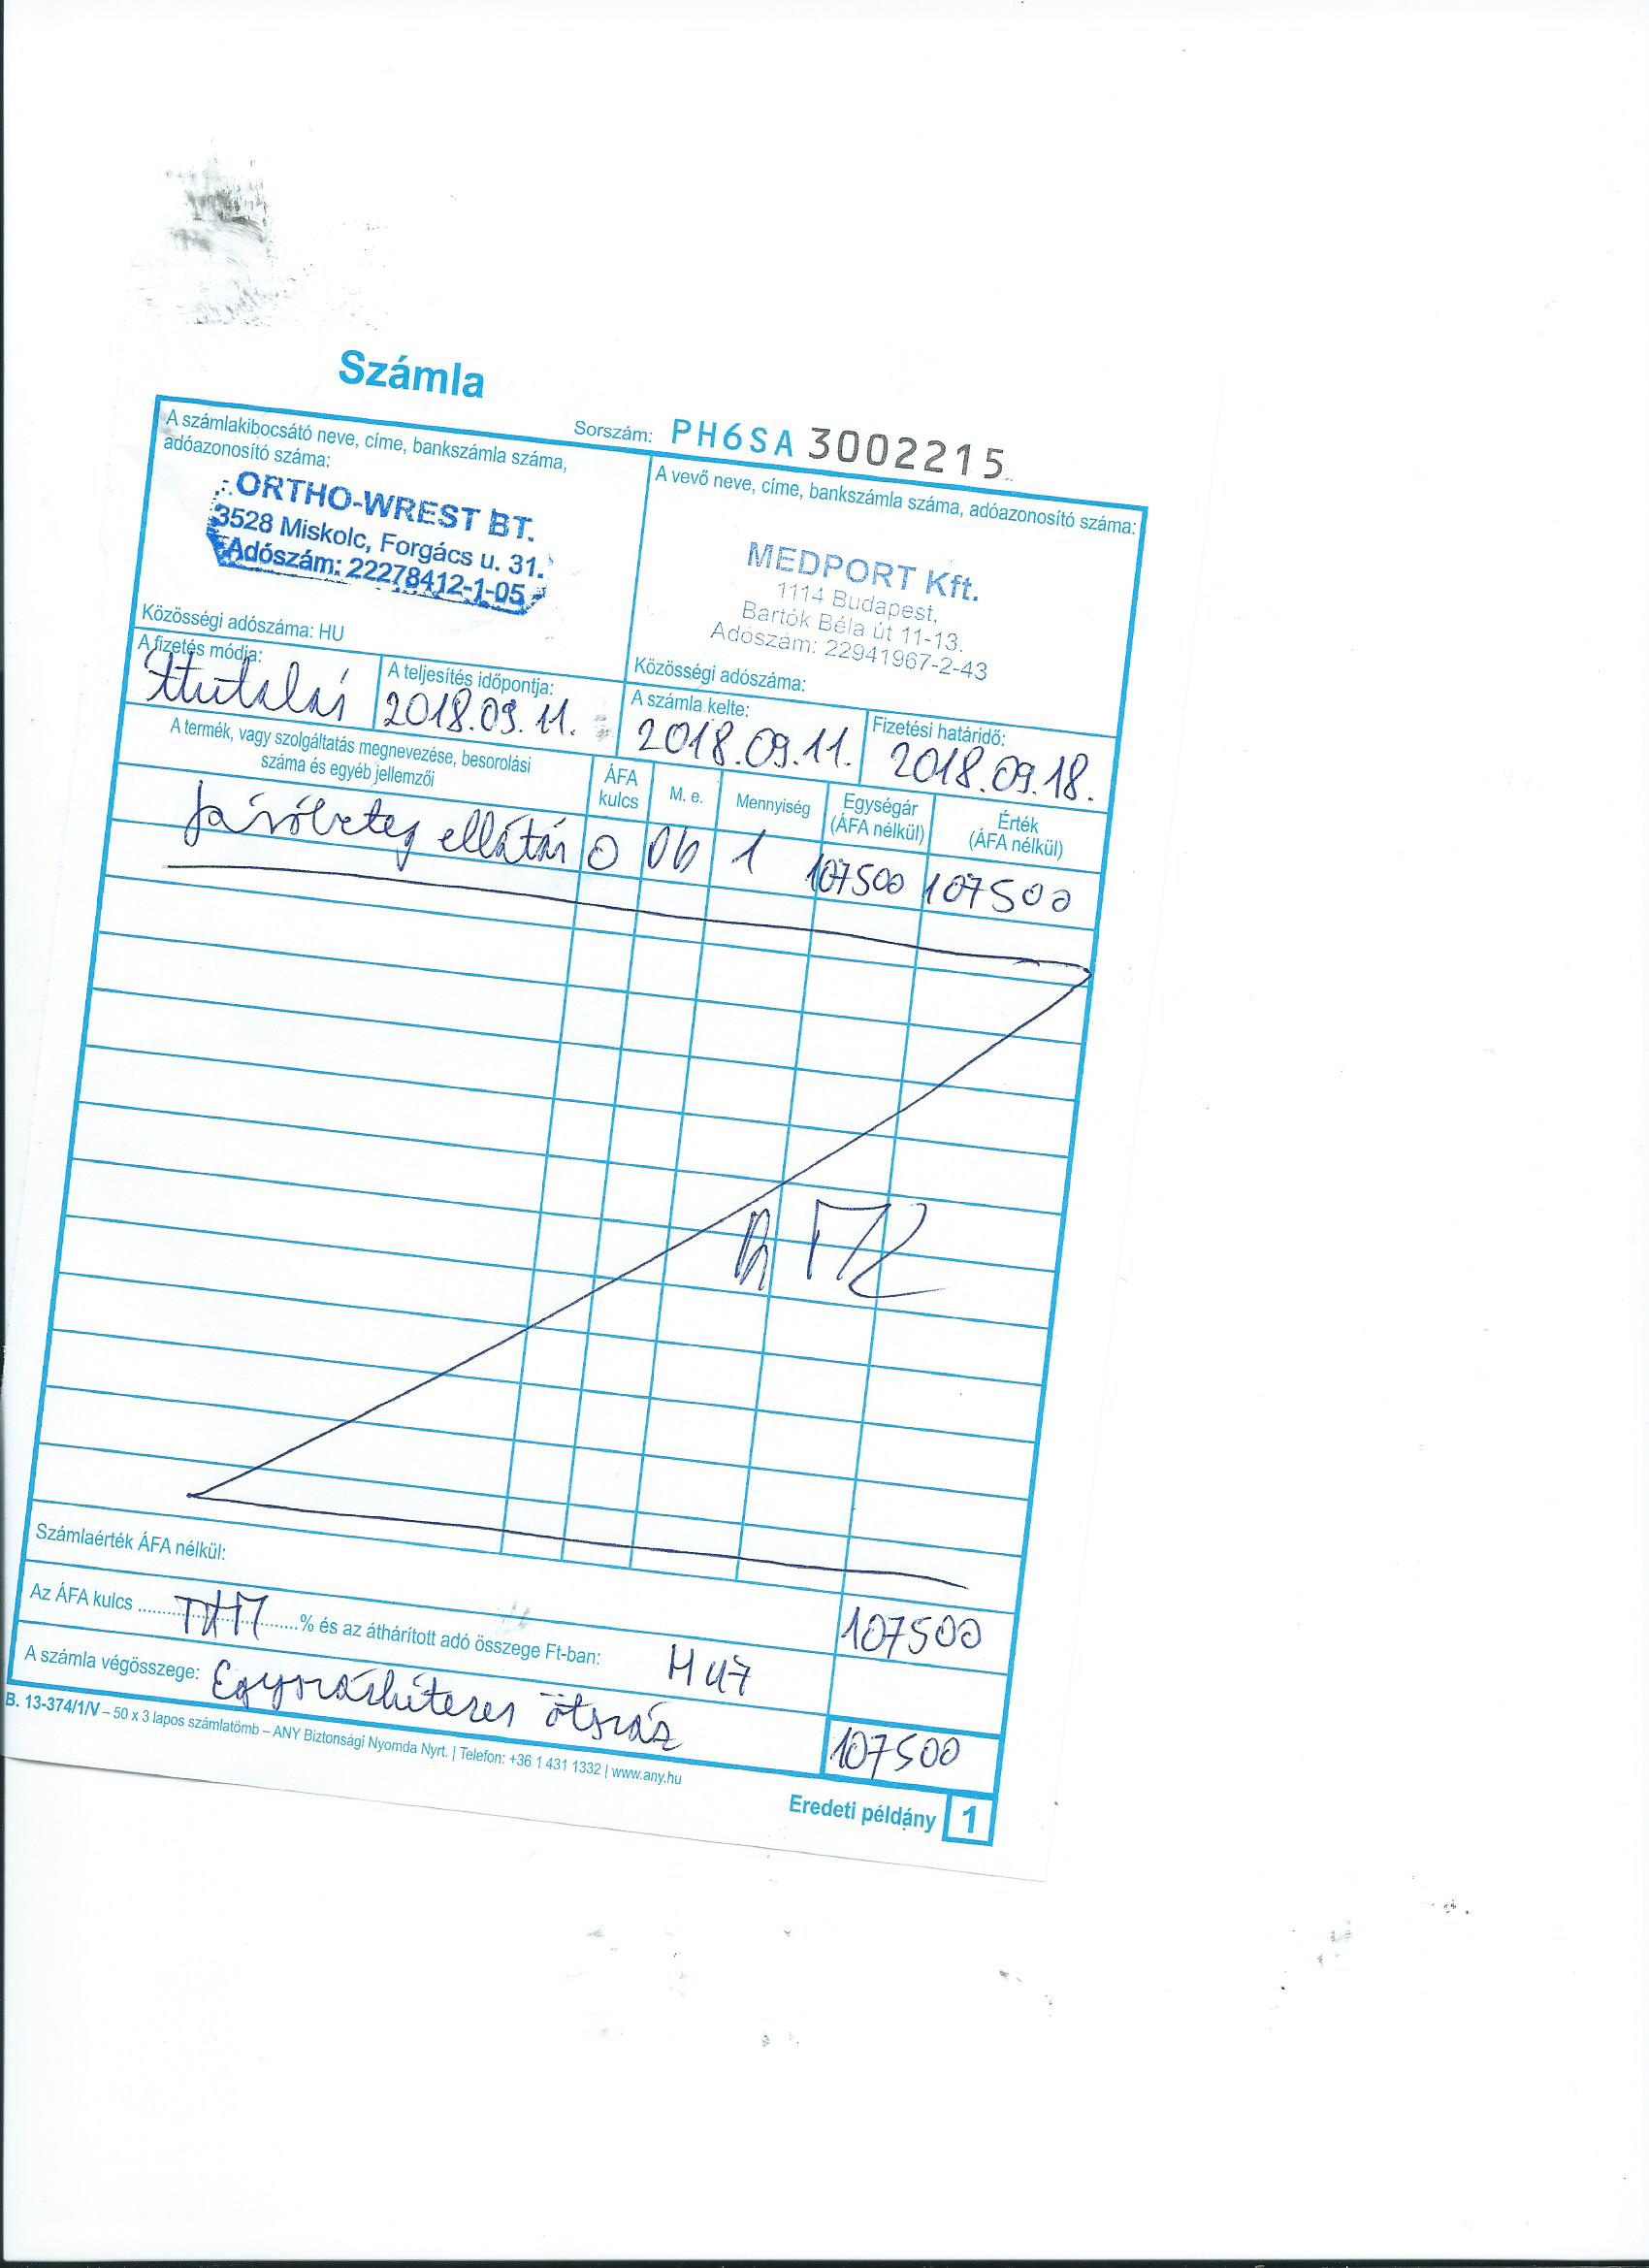 Számla
Sorszám: PH6SA 3002215
A számlakibocsátó neve, címe, bankszámla száma,
adóazonosító száma:
ORTHO-WREST BT.
3528 Miskolc, Forgács u. 31.
Adószám: 22278412-1-05
Közösségi adószáma: HU
A vevő neve, címe, bankszámla száma, adóazonosító száma:
MEDPORT Kft.
1114 Budapest,
Bartók Béla út 11-13.
Adószám: 22941967-2-43
Közösségi adószáma:
A fizetés módja:
Átutalás
A teljesítés időpontja:
2018.09.11.
A számla kelte:
2018.09.11.
Fizetési határidő:
2018.09.18.
A termék, vagy szolgáltatás megnevezése, besorolási
száma és egyéb jellemzői
ÁFA
kulcs
M. e.
Mennyiség
Egységár
(ÁFA nélkül)
Érték
(ÁFA nélkül)
Járóbeteg ellátás 0 Db 1 107500 107500
Számlaérték ÁFA nélkül:
107500
Az ÁFA kulcs ..........TAM..........% és az áthárított adó összege Ft-ban:
A számla végösszege: Egyszázhétezer ötszáz
107500
B. 13-374/1/V – 50 x 3 lapos számlatömb – ANY Biztonsági Nyomda Nyrt. | Telefon: +36 1 431 1332 | www.any.hu
Eredeti példány 1